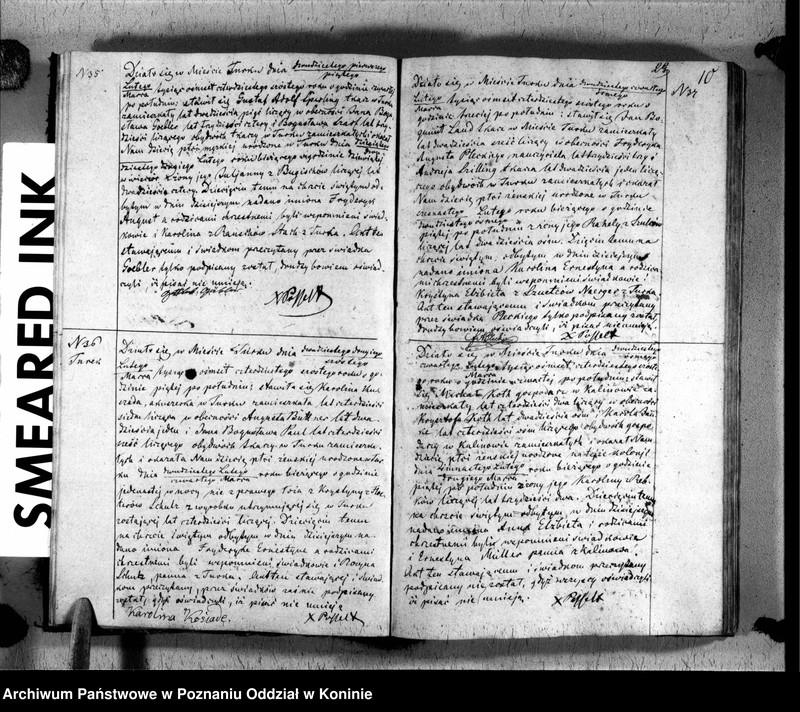 SMEARED INK
N35
Działo się w Mieście Turku dnia dwudziestego pierwszego
piątego
Lutego
Marca tysiąc ośmset czterdziestego szóstego roku o godzinie
po południu; stawił się Gustaf Adolf Sperling tkacz w Turku
zamieszkały lat dwadzieścia pięć liczący w obecności Jana Bogu
sława Goebler lat trzydzieści cztery i Bogusława lat trzy
dzieści liczących obydwóch tkaczy w Turku zamieszkałych i okazał
Nam dziecię płci męzkiej urodzone w Turku dnia
Lutego roku bieżącego o godzinie dziewiątej
z żony jego Julianny z lat
dwadzieścia cztery. Dziecięciu temu na chrzcie świętym od
bytym w dniu dzisiejszym nadano imiona Fryderyk
August a rodzicami chrzestnemi byli wspomnieni świad
kowie i Karolina z Stark z Turku. Akt ten
stawającemu i świadkom przeczytany przez świadka
Goebler tylko podpisany został, drudzy bowiem oświad
czyli, iż pisać nie umieją.
X Posselt
N36
Turek
Działo się w Mieście Turku dnia dwudziestego drugiego
szóstego
Lutego
Marca tysiąc ośmset czterdziestego szóstego roku o go
dzinie piątej po południu; stawiła się Karolina
akuszerka w Turku zamieszkała lat czterdzieści
siedm licząca w obecności Augusta lat dwa
dzieścia jeden i Jana Bogusława Paul lat czterdzieści
sześć liczącego obydwóch tkaczy w Turku zamieszka
łych i okazała Nam dziecię płci żeńskiej urodzone w Tur
ku dnia dwudziestego Lutego roku bieżącego o godzinie
czwartego Marca
jedenastej w nocy nie z prawego łoża z Krystyny z
Schulz z wyrobku utrzymującej się w Turku
zostającej lat czterdzieści liczącej. Dziecięciu temu
na chrzcie świętym odbytym w dniu dzisiejszym na
dano imiona Fryderyka Ernestyna a rodzicami
chrzestnemi byli wspomnieni świadkowie i Rozyna
Schulz, panna z Turku. Akt ten stawającej i świad
kom przeczytany, przez świadków podpisany
został, gdyż oświadczyli, iż pisać nie umieją
Karolina
X Posselt
10
N37
Działo się w Mieście Turku dnia dwudziestego czwartego
Lutego tysiąc ośmset czterdziestego szóstego roku o
Marca
godzinie trzeciej po południu; stawił się Jan Bo
gumił Land tkacz w Mieście Turku zamieszkały
lat dwadzieścia sześć liczący w obecności Fryderyka
Augusta Pleckiego nauczyciela lat trzydzieści trzy i
Andrzeja Szilling tkacza lat dwadzieścia jeden liczą
cego obydwóch w Turku zamieszkałych i okazał
Nam dziecię płci żeńskiej urodzone w Turku
Lutego roku bieżącego o godzinie
piątej po południu z żony jego Rahely z
liczącej lat dwadzieścia ośm. Dziecięciu temu na
chrzcie świętym, odbytym w dniu dzisiejszym
nadano imiona Karolina Ernestyna a rodzica
mi chrzestnemi byli wspomnieni świadkowie i
Krystyna Elżbieta z z Turku
Akt ten stawającemu i świadkom przeczytany
przez świadka Pleckiego tylko podpisany został,
drudzy bowiem oświadczyli, iż pisać nie umieją.
X Posselt
Działo się w Mieście Turku dnia dwudziestego
czwartego Lutego tysiąc ośmset czterdziestego szóste
Marca
go roku o godzinie czwartej po południu; stawił
się Michał Roth gospodarz w Kalinowie za
mieszkały lat czterdzieści dwa liczący w obecności
Krysztofa Roth lat dwadzieścia ośm i Karola
lat czterdzieści ośm liczącego obydwóch gospo
darzy w Kalinowie zamieszkałych i okazał Nam
dziecię płci żeńskiej urodzone na tejże kolonii
dnia Lutego roku bieżącego o godzinie
drugiego Marca
piątej po południu z żony jego Karoliny z
liczącej lat trzydzieści dwa. Dziecięciu temu
na chrzcie świętym odbytym w dniu dzisiejszym
nadano imiona Anna Elżbieta a rodzicami
chrzestnemi byli wspomnieni świadkowie
i Ernestyna Miller panna z Kalinowa.
Akt ten stawającemu i świadkom przeczytany
podpisany nie został, gdyż wszyscy oświadczyli
iż pisać nie umieją.
X Posselt
Archiwum Państwowe w Poznaniu Oddział w Koninie